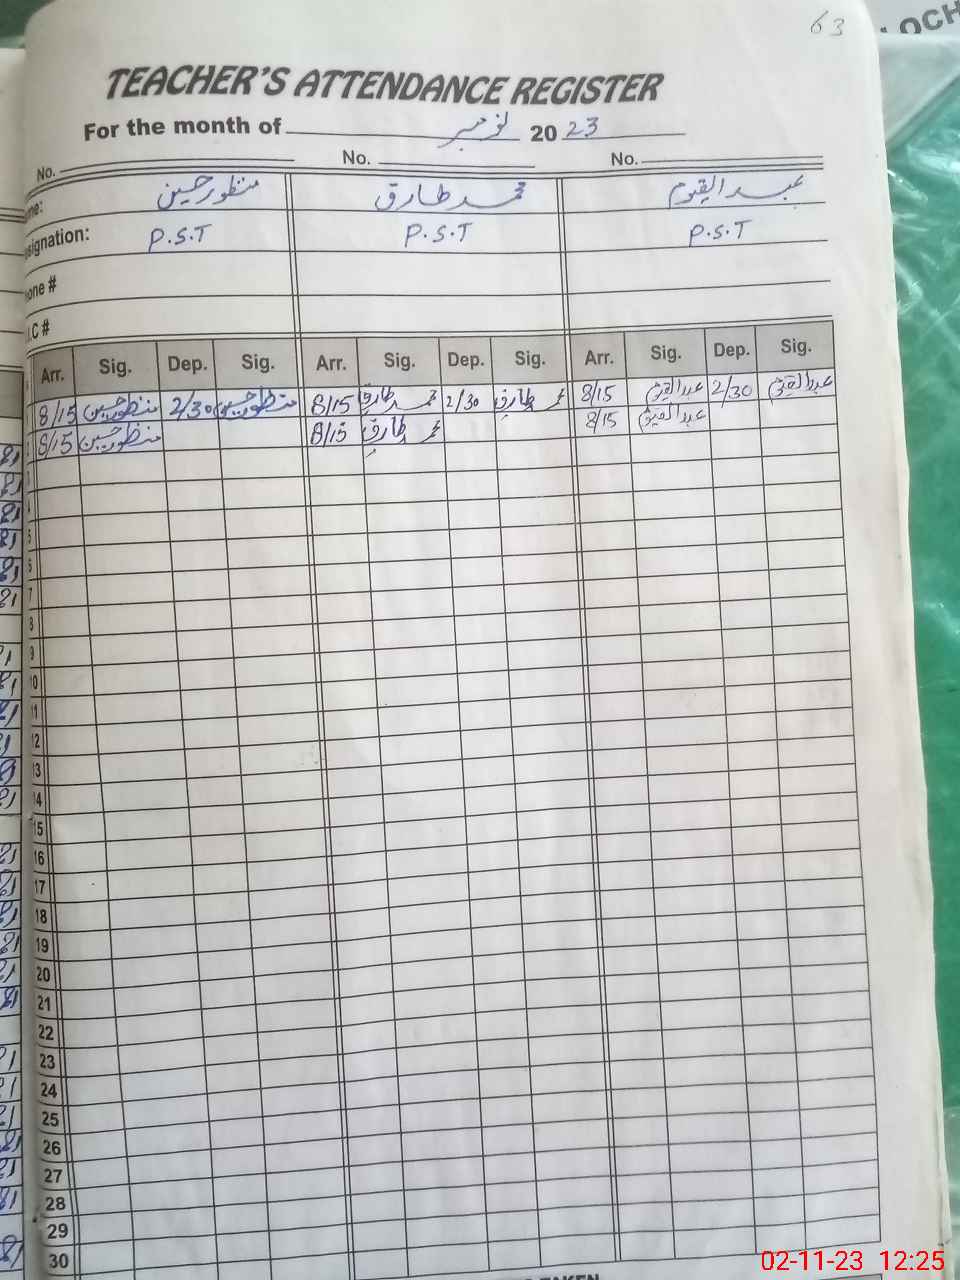 63
LOCH
TEACHER'S ATTENDANCE REGISTER
For the month of نومبر 2023
No. No. No.
منظور حسین محمد طارق عبدالقیوم
signation: P.S.T P.S.T P.S.T
one #
.C #
Arr. Sig. Dep. Sig. Arr. Sig. Dep. Sig. Arr. Sig. Dep. Sig.
8/15 منظور حسین 2/30 منظور حسین 8/15 محمد طارق 2/30 محمد طارق 8/15 عبدالقیوم 2/30 عبدالقیوم
8/15 منظور حسین 8/15 محمد طارق 8/15 عبدالقیوم
3
4
5
6
7
8
9
10
11
12
13
14
15
16
17
18
19
20
21
22
23
24
25
26
27
28
29
30
02-11-23 12:25